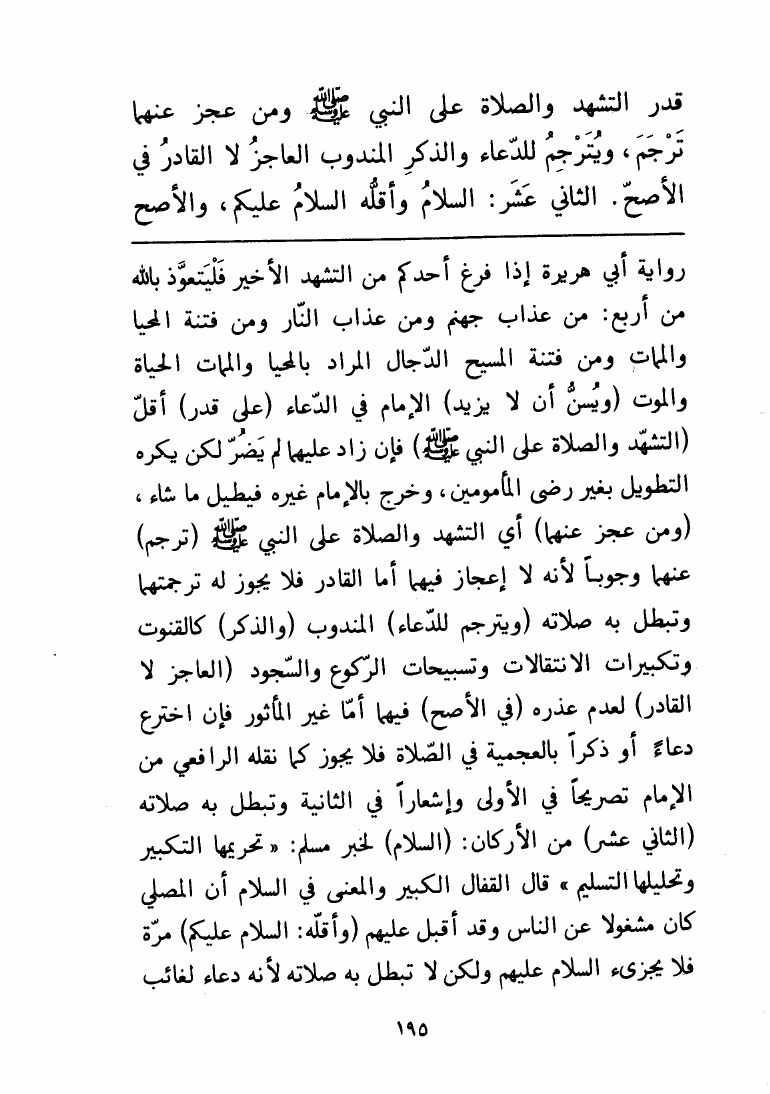 قدر التشهد والصلاة على النبي ﷺ ومن عجز عنهما
تَرْجَمَ، ويُتَرْجِمُ للدّعاء والذكرِ المندوب العاجزُ لا القادرُ في
الأصحّ. الثاني عَشَر: السلامُ وأقلُّه السلامُ عليكم، والأصح
رواية أبي هريرة إذا فرغ أحدكم من التشهد الأخير فَلْيَتعوَّذ بالله
من أربع: من عذاب جهنم ومن عذاب النّار ومن فتنة المحيا
والممات ومن فتنة المسيح الدّجال المراد بالمحيا والممات الحياة
والموت (ويُسنُّ أن لا يزيد) الإمام في الدّعاء (على قدر) أقلّ
(التشهّد والصلاة على النبي ﷺ) فإن زاد عليهما لم يَضُرّ لكن يكره
التطويل بغير رضى المأمومين، وخرج بالإمام غيره فيطيل ما شاء،
(ومن عجز عنهما) أي التشهد والصلاة على النبي ﷺ (ترجم)
عنهما وجوباً لأنه لا إعجاز فيهما أما القادر فلا يجوز له ترجمتهما
وتبطل به صلاته (ويترجم للدّعاء) المندوب (والذكر) كالقنوت
وتكبيرات الانتقالات وتسبيحات الرّكوع والسّجود (العاجز لا
القادر) لعدم عذره (في الأصح) فيهما أمّا غير المأثور فإن اخترع
دعاءً أو ذكراً بالعجمية في الصّلاة فلا يجوز كما نقله الرافعي من
الإمام تصريحاً في الأولى وإشعاراً في الثانية وتبطل به صلاته
(الثاني عشر) من الأركان: (السلام) لخبر مسلم: «تحريمها التكبير
وتحليلها التسليم» قال القفال الكبير والمعنى في السلام أن المصلي
كان مشغولا عن الناس وقد أقبل عليهم (وأقلّه: السلام عليكم) مرّة
فلا يجزىء السلام عليهم ولكن لا تبطل به صلاته لأنه دعاء لغائب
١٩٥